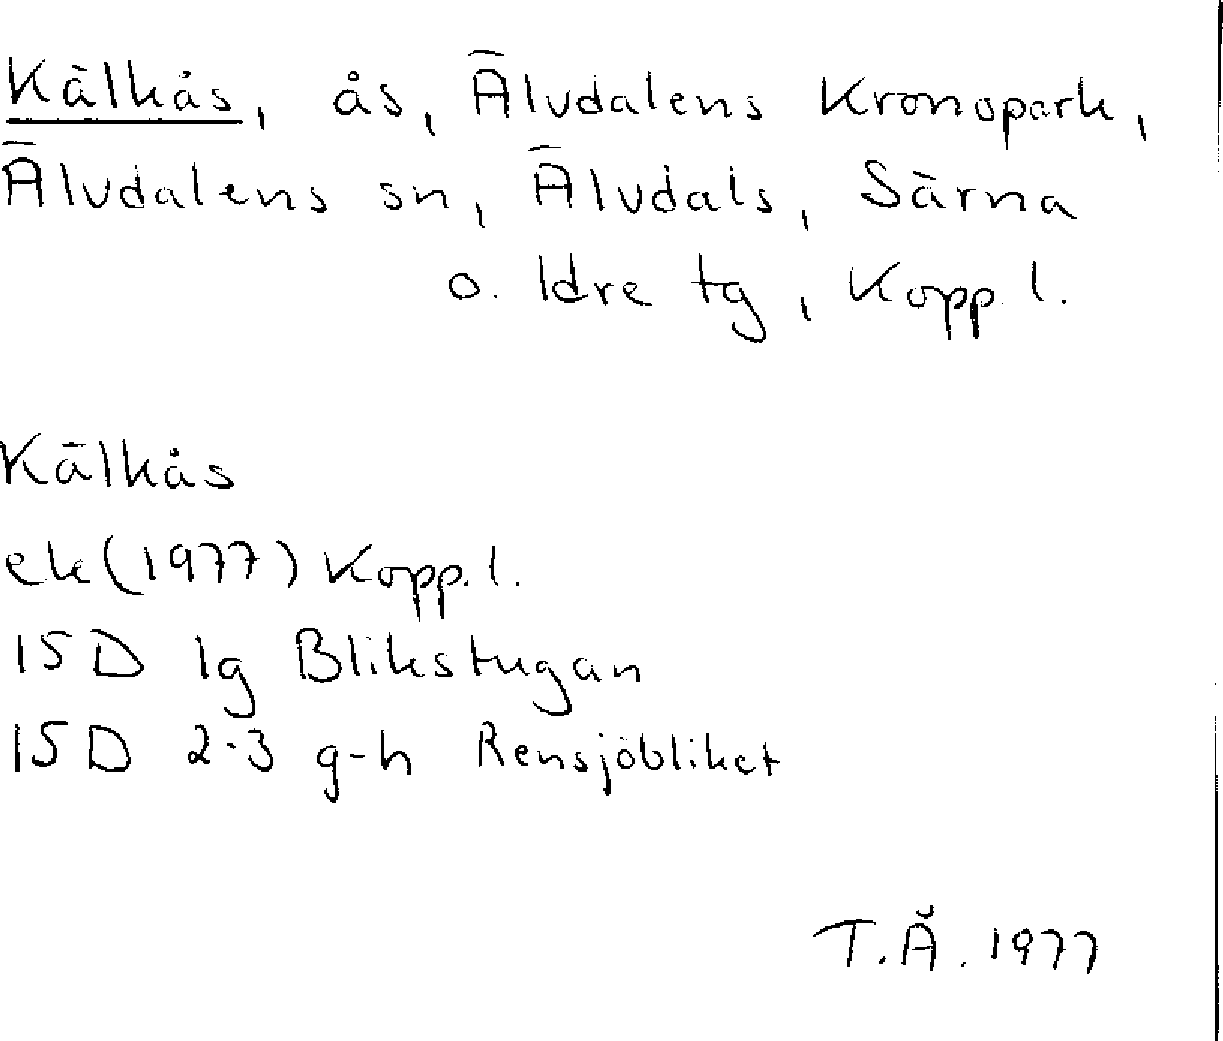 Kälkås, ås, Älvdalens Kronopark,
Älvdalens sn, Älvdals, Särna
o. Idre tg, Kopp. l.
Kälkås
ek (1977) Kopp. l.
15D 1g Blikstugan
15D 2-3 g-h Rensjöbliket
T.Å. 1977